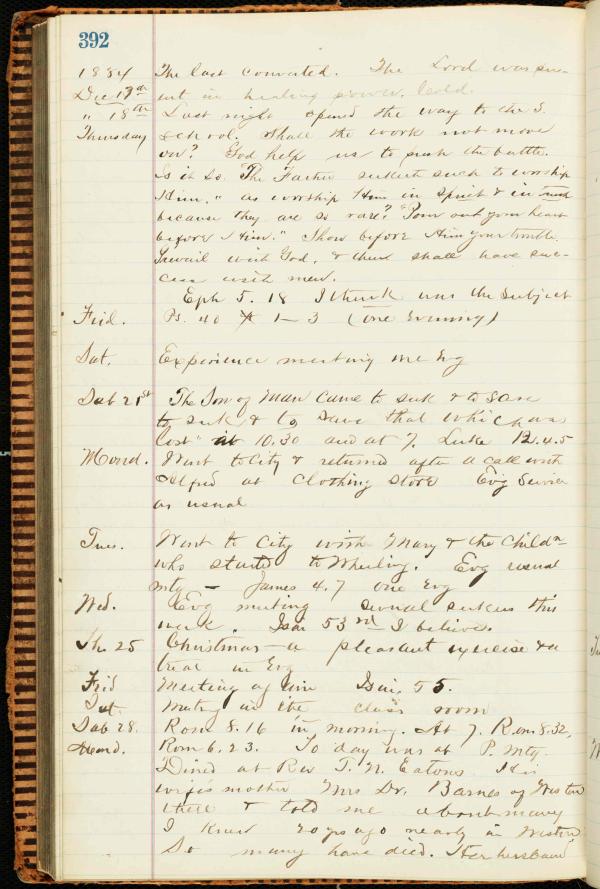 392
1884 The last converted. The Lord was pre-
Dec 17th ent in healing power. Cold.
" 18th Last night opened the way to the S.
Thursday School. Shall the work not move
on? God help us to push the battle.
Is it so. The Father seeketh such to worship
Him," as worship Him in Spirit & in truth
because they are so rare? "Pour out your heart
before Him." Show before Him your trouble.
Prevail with God, & thou shall have suc-
cess with men.
Eph 5. 18 I think was the subject
Frid. Ps. 40 1-3 (one Evening)
Sat. Experience meeting in Evg
Sab 21st The Son of Man came to seek & to save
to seek & to save that which was
lost" at 10.30 and at 7. Luke 12.4.5
Mond. Went to City & returned after a call with
Alfred at Clothing Store Evg Service
as usual
Tues. Went to City with Mary & the Childn
who started to Wheeling. Evg usual
mtg - James 4.7 one Evg
Wed. Evg meeting several seekers this
week. Isai 53rd I believe.
Th 25 Christmas - a pleasant exercise & a
treat in Evg
Frid Meeting again Isai 55.
Sat. Meeting in the class room
Sab 28. Rom 8.16 in morning. At 7. Rom 8.32,
Mond. Rom 6.23. To day was at P. Mtg.
Dined at Rev T. N. Eatons. His
wife's mother Mrs Dr. Barnes of Weston
there & told me about many
I knew 20 yrs ago nearly in Weston.
So many have died. Her husband